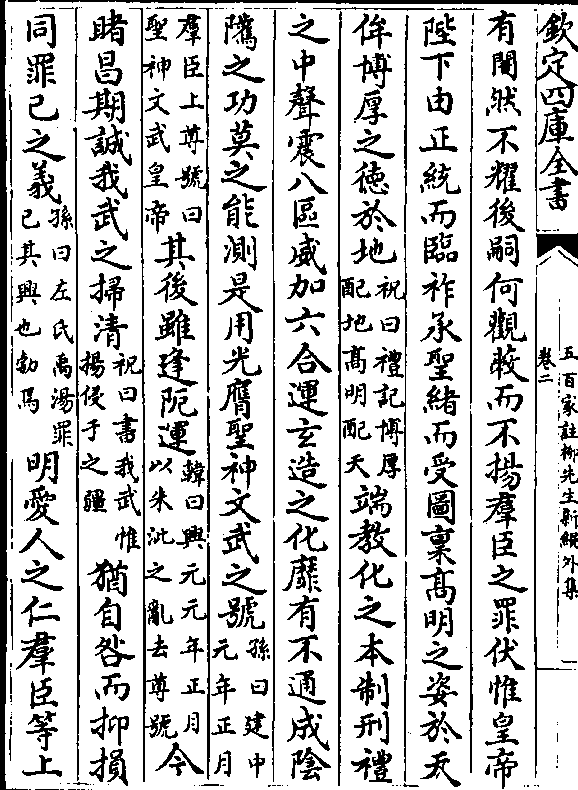 欽定四庫全書
五百家註柳先生新編外集
卷二
有闇然不耀後嗣何觀蔽而不揚羣臣之罪伏惟皇帝
陛下由正統而臨祚承聖緒而受圖稟高明之姿於天
侔博厚之徳於地祝曰禮記博厚配地髙明配天端教化之本制刑禮
之中聲震八區威加六合運玄造之化靡有不通成陰
隲之功莫之能測是用光膺聖神文武之號孫曰建中元年正月
羣臣上尊號曰聖神文武皇帝其後雖逢阨運韓曰興元元年正月以朱泚之亂去尊號今
睹昌期誠我武之掃清祝曰書我武惟揚侵于之疆猶自咎而抑損
同罪己之義孫曰左氏禹湯罪己其興也勃焉明愛人之仁羣臣等上